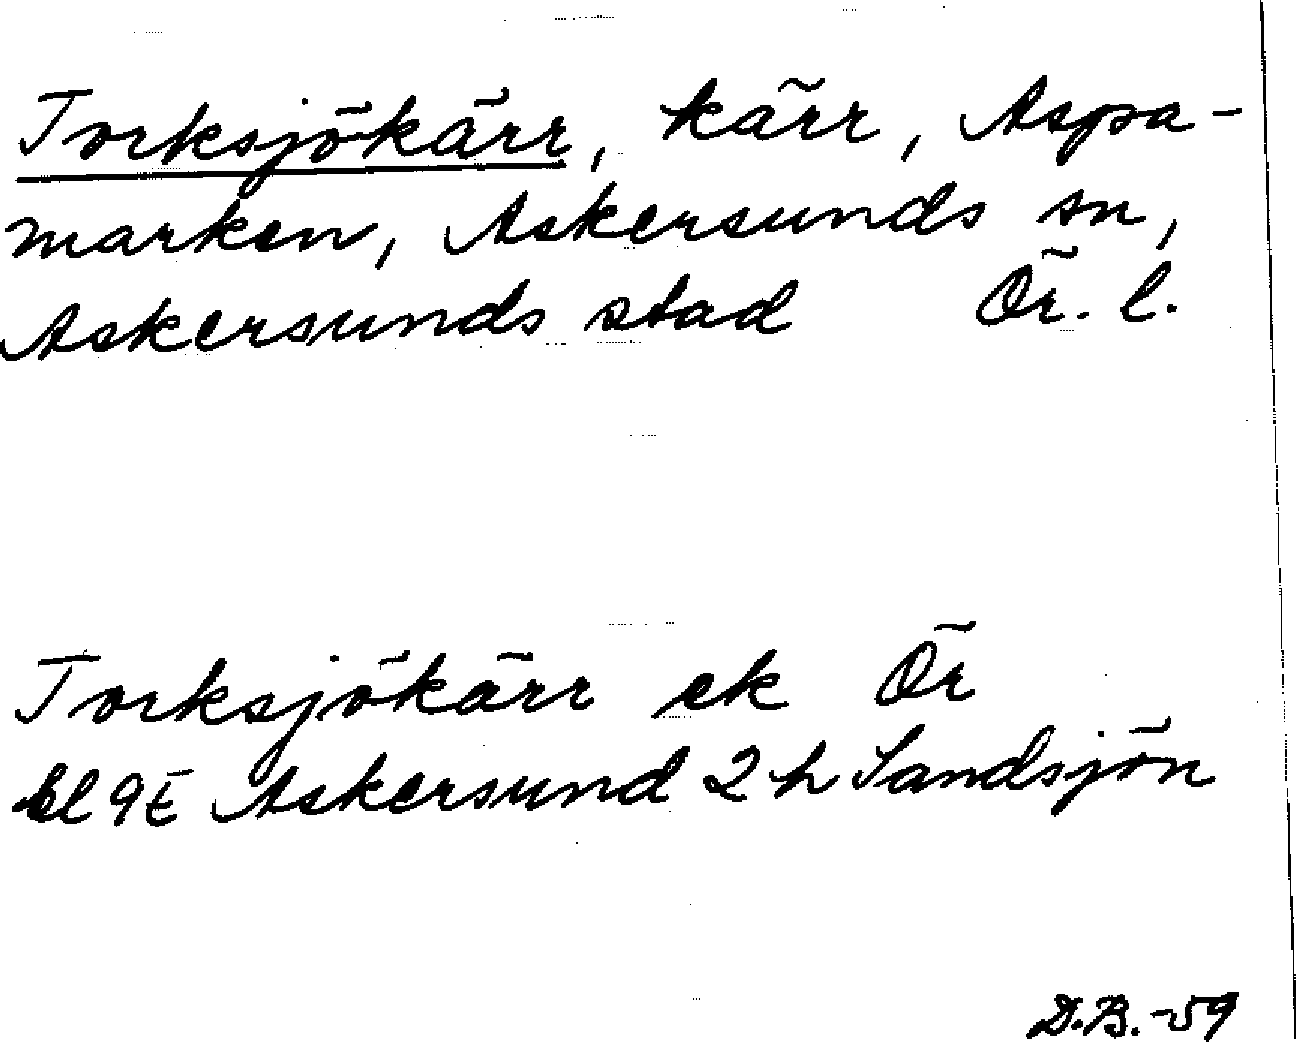 Torksjökärr, kärr, Aspa-
marken, Askersunds sn,
Askersunds stad Ör. l.
Torksjökärr ek Ör
bl 9E Askersund 2 h Sandsjön
D.B.-59